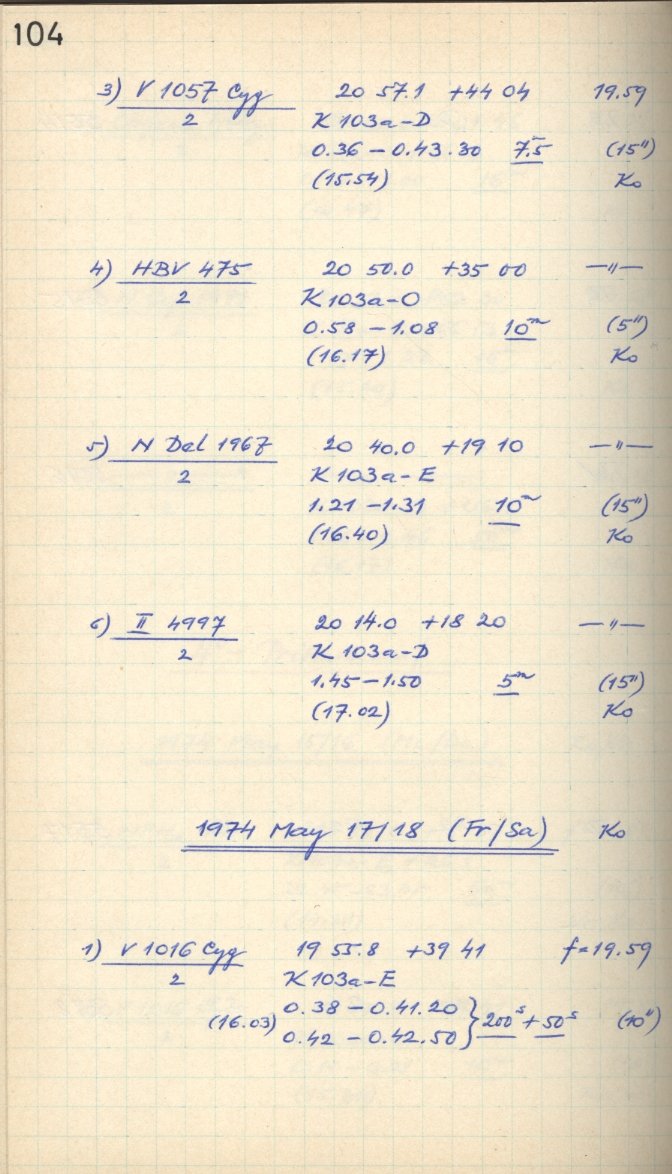 104
3) V 1057 Cyg 20 57.1 +44 04 19.59
2 K 103a-D
0.36 – 0.43.30 7.5 (15")
(15.54) Ko
4) HBV 475 20 50.0 +35 00 —"—
2 K 103a-O
0.58 – 1.08 10ᵐ (5")
(16.17) Ko
5) N Del 1967 20 40.0 +19 10 —"—
2 K 103a-E
1.21 – 1.31 10ᵐ (15")
(16.40) Ko
6) II 4997 20 14.0 +18 20 —"—
2 K 103a-D
1.45 – 1.50 5ᵐ (15")
(17.02) Ko
1974 May 17/18 (Fr/Sa) Ko
1) V 1016 Cyg 19 55.8 +39 41 f=19.59
2 K 103a-E
(16.03) 0.38 – 0.41.20 } 200ˢ + 50ˢ (10")
0.42 – 0.42.50